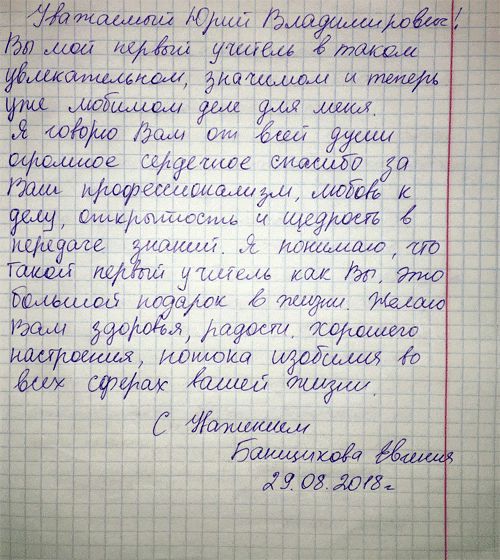 Уважаемый Юрий Владимирович!
Вы мой первый учитель в таком
увлекательном, значимом и теперь
уже любимом деле для меня.
Я говорю Вам от всей души
огромное сердечное спасибо за
Ваш профессионализм, любовь к
делу, открытость и щедрость в
передаче знаний. Я понимаю, что
такой первый учитель как Вы, это
большой подарок в жизни. Желаю
Вам здоровья, радости, хорошего
настроения, потока изобилия во
всех сферах вашей жизни.
С Уважением
Банщикова Евгения
29.08.2018г